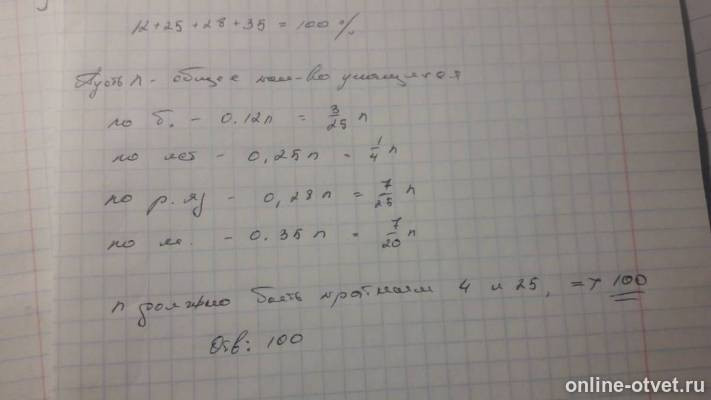 12+25+28+35 = 100 %
Пусть n - общее кол-во учащихся
по б. - 0.12n = 3/25 n
по ист - 0,25n = 1/4 n
по р. яз - 0,28n = 7/25 n
по м. - 0.35n = 7/20 n
n должно быть кратным 4 и 25, => 100
Отв: 100
online-otvet.ru